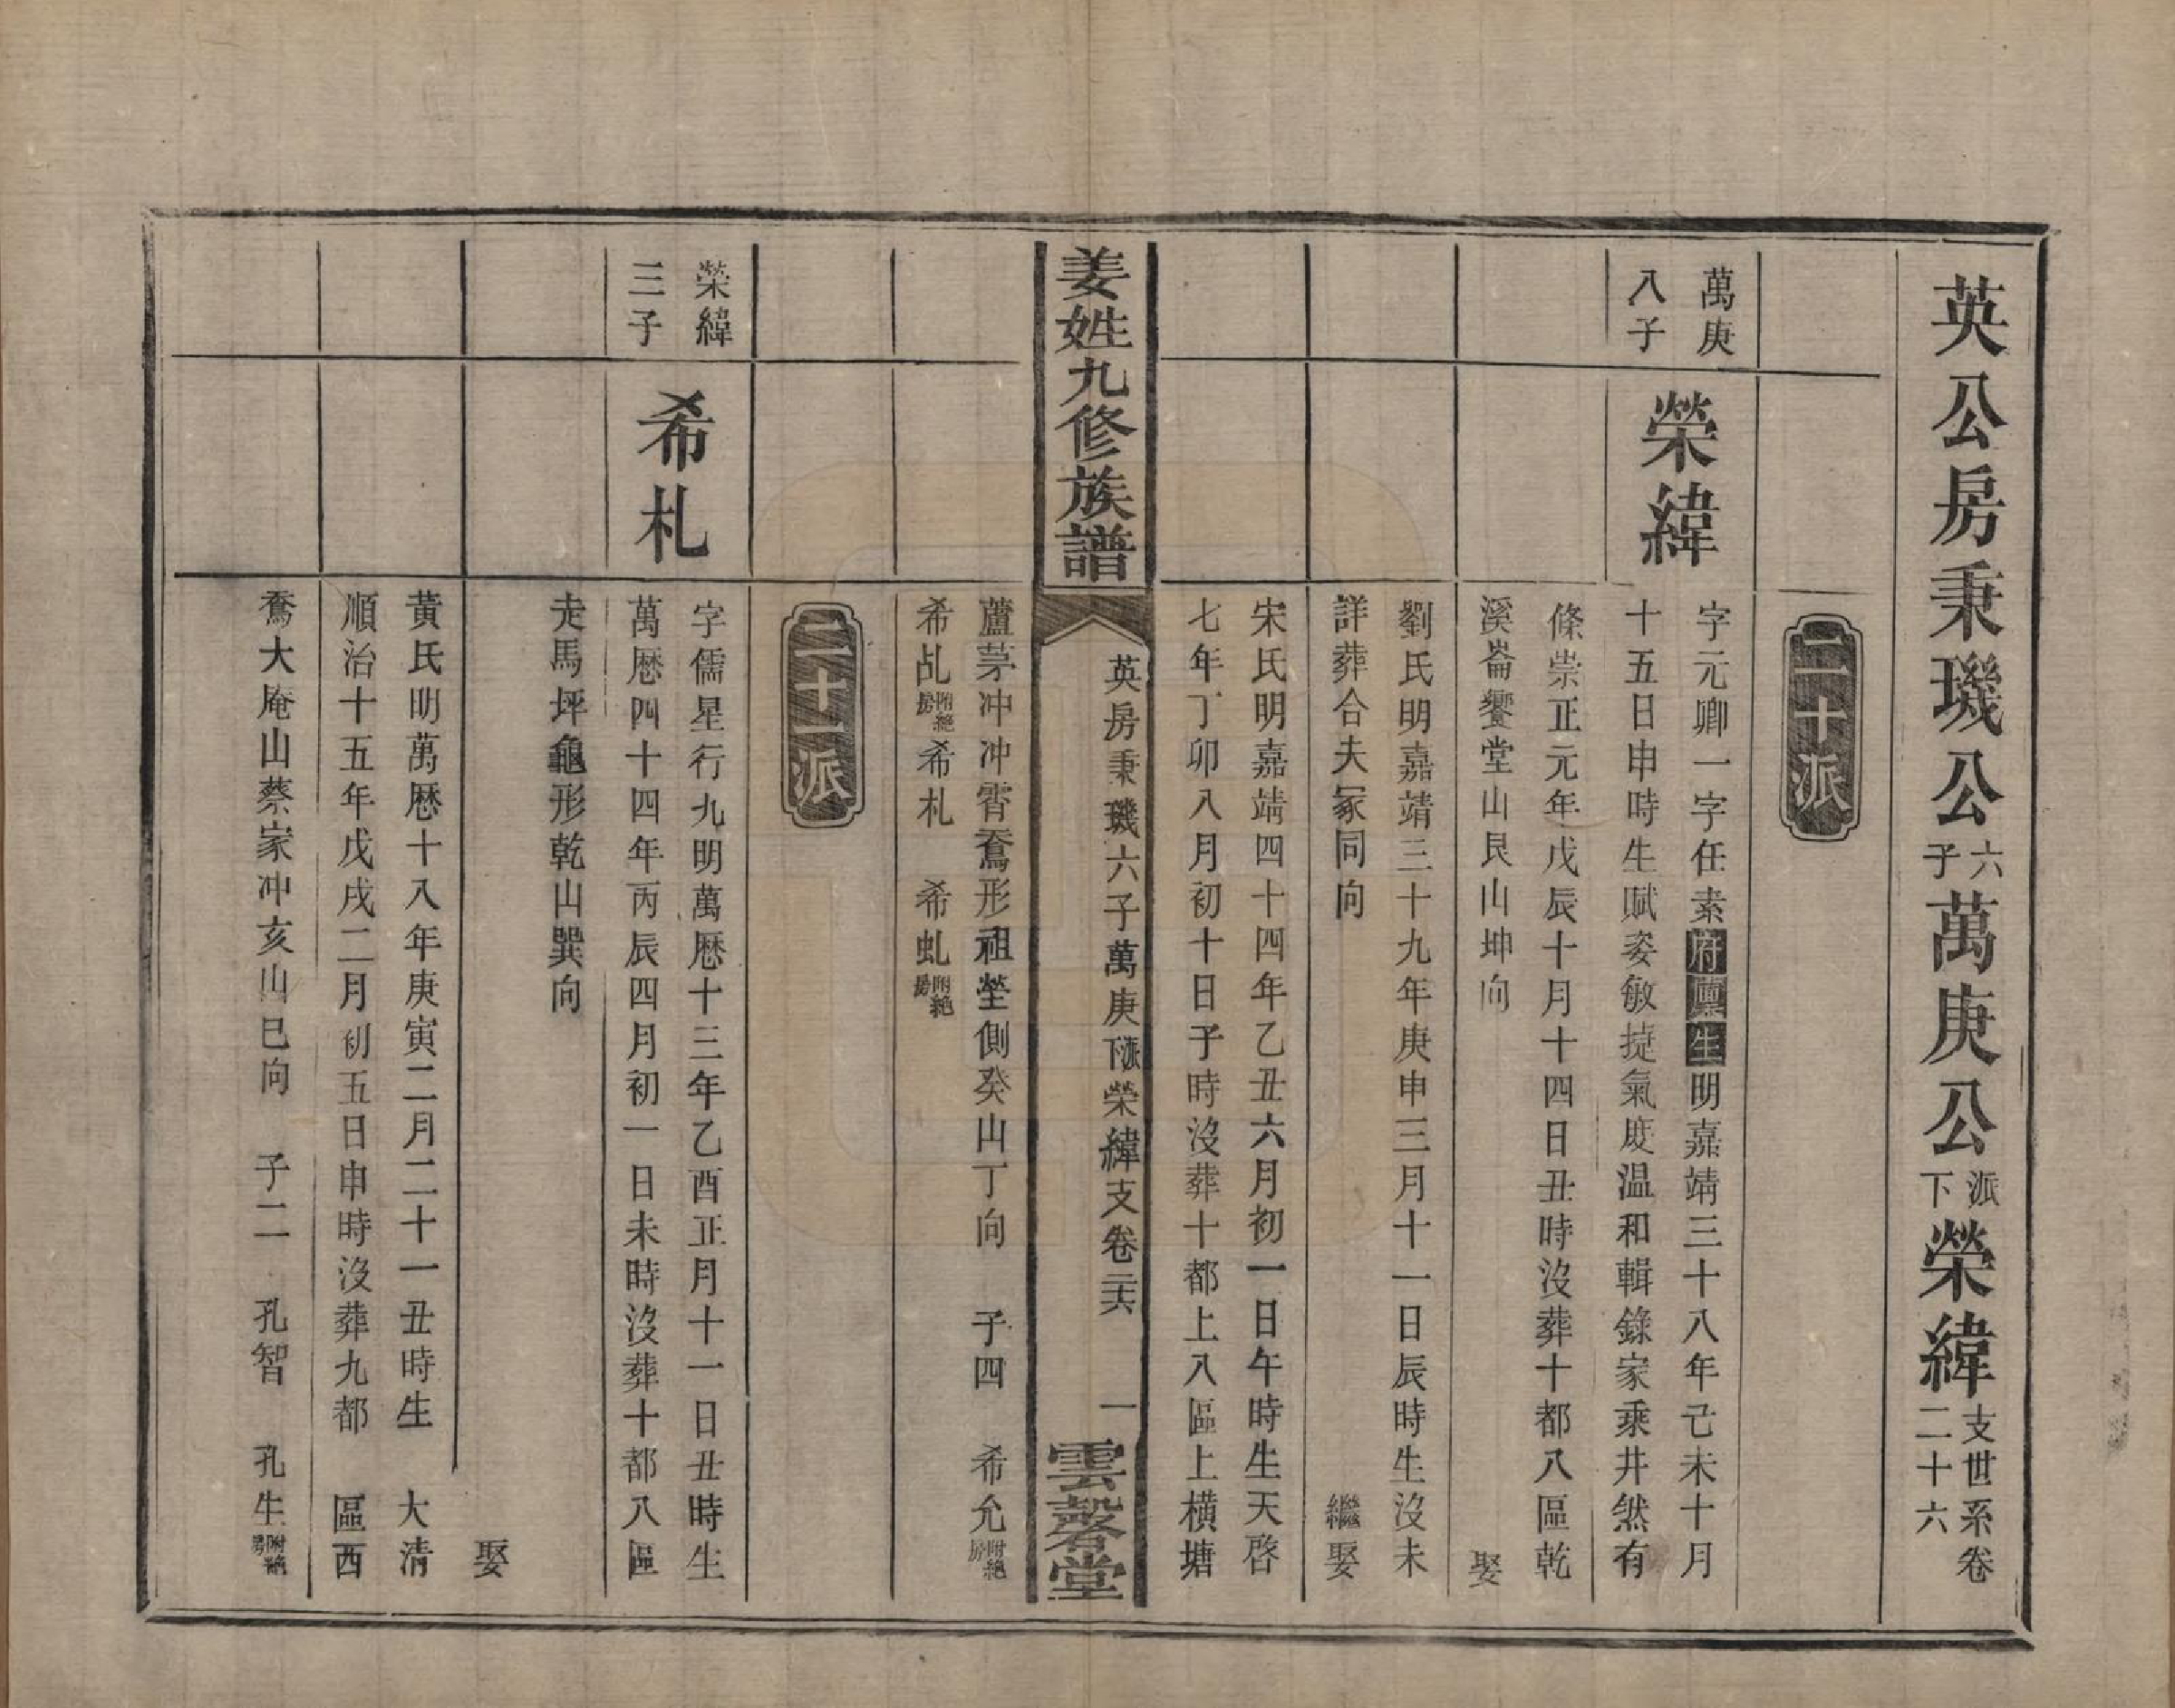 英公房秉璣公六子萬庚公派下榮緯支世系卷二十六
二十派
萬庚八子
榮緯
字元卿一字任素府廩生明嘉靖三十八年己未十月
十五日申時生賦姿敏㨗氣度温和輯錄家乘井然有
條崇正元年戊辰十月十四日丑時沒葬十都八區乾
溪崙饗堂山艮山坤向 娶
劉氏明嘉靖三十九年庚申三月十一日辰時生沒未
詳葬合夫冢同向 繼娶
宋氏明嘉靖四十四年乙丑六月初一日午時生天啓
七年丁卯八月初十日子時沒葬十都上八區上橫塘
姜姓九修族譜
英房秉璣六子萬庚派下榮緯支卷二十六 一
雲磬堂
蘆茅冲冲霄鴦形祖塋側癸山丁向 子四 希允附絕房
希乩附絕房 希札 希虬附絕房
二十一派
榮緯三子
希札
字儒星行九明萬厯十三年乙酉正月十一日丑時生
萬厯四十四年丙辰四月初一日未時沒葬十都八區
走馬坪龜形乾山巽向 娶
黃氏明萬厯十八年庚寅二月二十一丑時生 大清
順治十五年戊戌二月初五日申時沒葬九都 區西
大庵山蔡家冲亥山巳向 子二 孔智 孔生附絕房